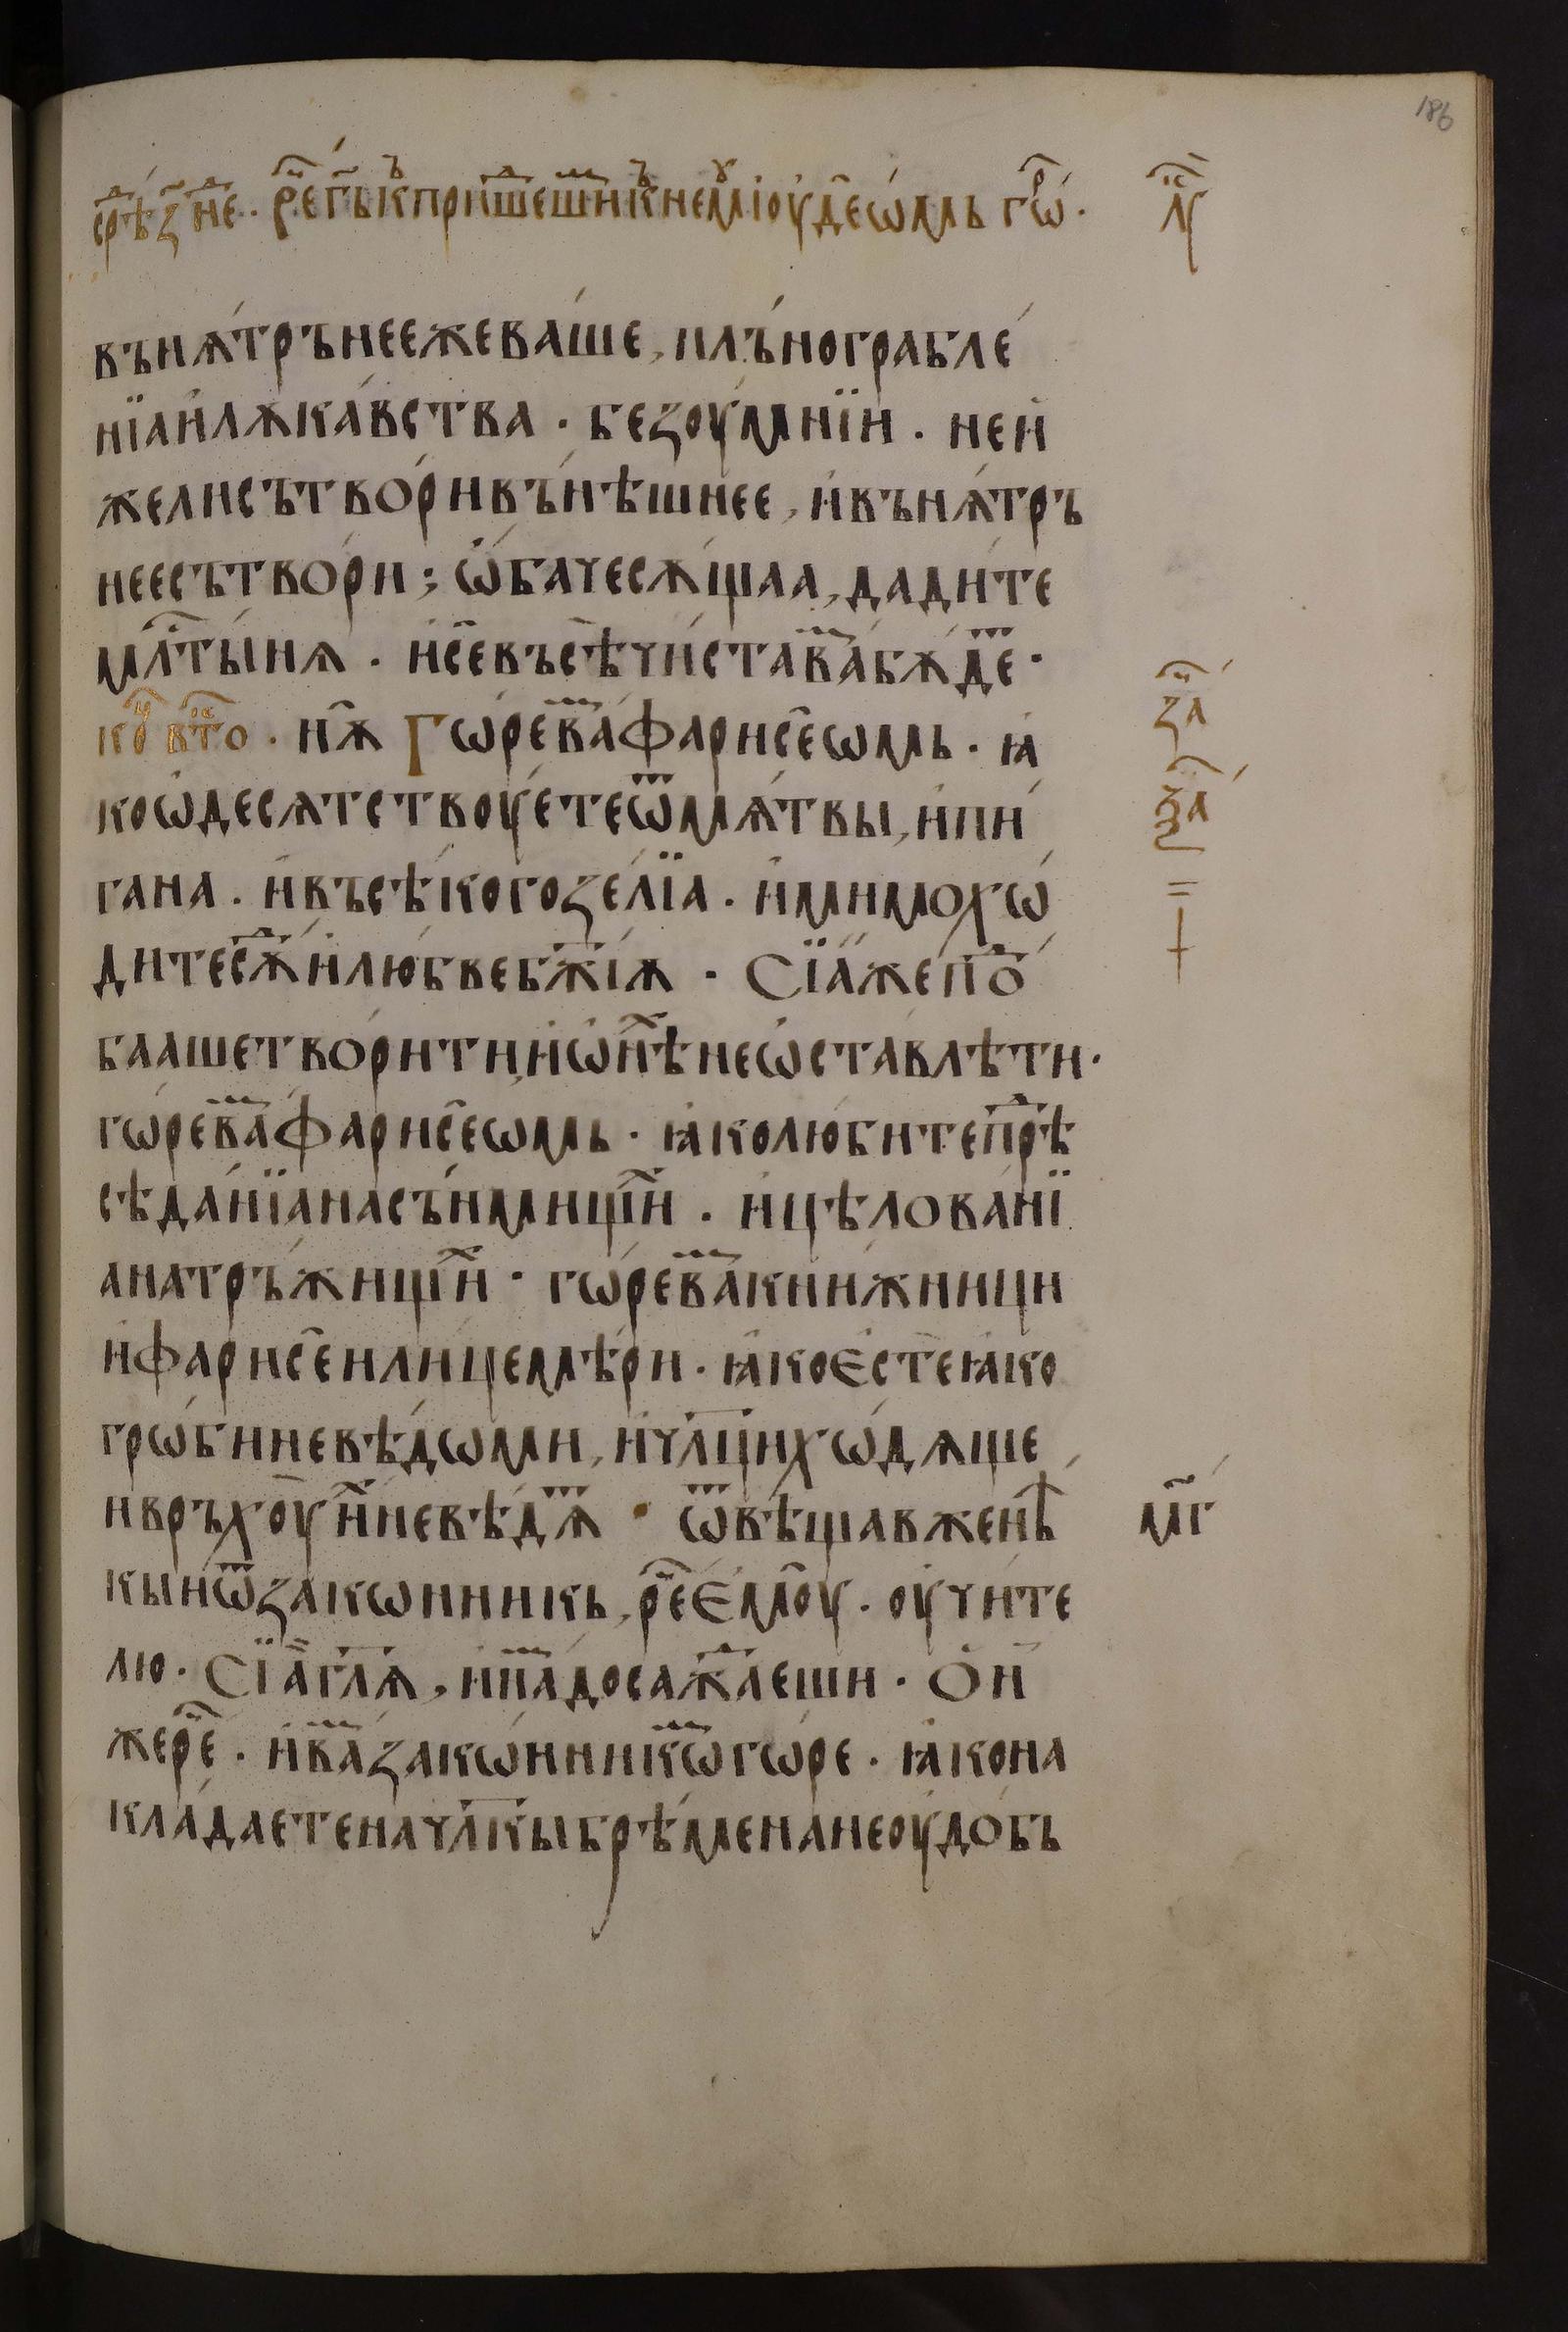 186
срⷣѣ з҃ нⷣе · рⷱ҇е гⷭ҇ькъ пришеⷣшїиⷨ къ немꙋ іоуде́ѡмь го́рⷬ҇ѡ · лꙋⷦ҇
вънѫ́трънеежева́ше, плъ́нограбле́
нїаи҆лѫка́вства · безоу́мнїи · нейⷩ
желисътво́ривъ́нѣшнее, и҆вънѫ́тръ
неесътво́ри; ѡ҆ба́чесѫ́щаа, дади́те
млⷭ҇ты́нѧ · и҆сⷷевъсѣчи́ставⷨабѫ́деⷮ ·
коⷩ҇ вто · нѫ Го́ревⷨафарисе́ѡмь · ꙗ҆ заⷱ҇
коѡ҆десѧтствоу́етеѿмѧ́твы, и҆пи́ ѯ҃а
гана · и҆въсѣ́когозе́лїа · и҆ми́мохѡ́ =
дитесѫⷣи҆лю́бвебж҃їѫ · Сїа́жепоⷣ †
баашетвори́ти, и҆ѡ҆нѣⷯнеѡ҆ставлѣ́ти ·
го́ревⷨафарисе́ѡмь · ꙗ҆колю́битепрѣⷣ
сѣда́нїанасъ́нмищиⷯ · и҆цѣлова́нї
анатръ́жищиⷯ · го́ревⷨакни́жници
и҆фарисе́илицемѣ́ри · ꙗ҆коЄсте́ꙗ҆ко
гро́биневѣ́дѡми, и҆чл҃цихѡ́дѧще
и҆връхоу́иⷯневѣ́дѧⷮ · ѿвѣщавженѣ́ мг҃
кыиѿзако́нникь, рⷱ҇еЄмоу · оу҆чи́те
лю · Сїа́гл҃ѧ, и҆наⷨдосажⷣа́еши · О҆н
жерⷱ҇е · и҆ваⷨзако́нникѡⷨго́ре · ꙗ҆кона
кла́даетеначл҃кыбрѣ́менанеоу҆до́бь